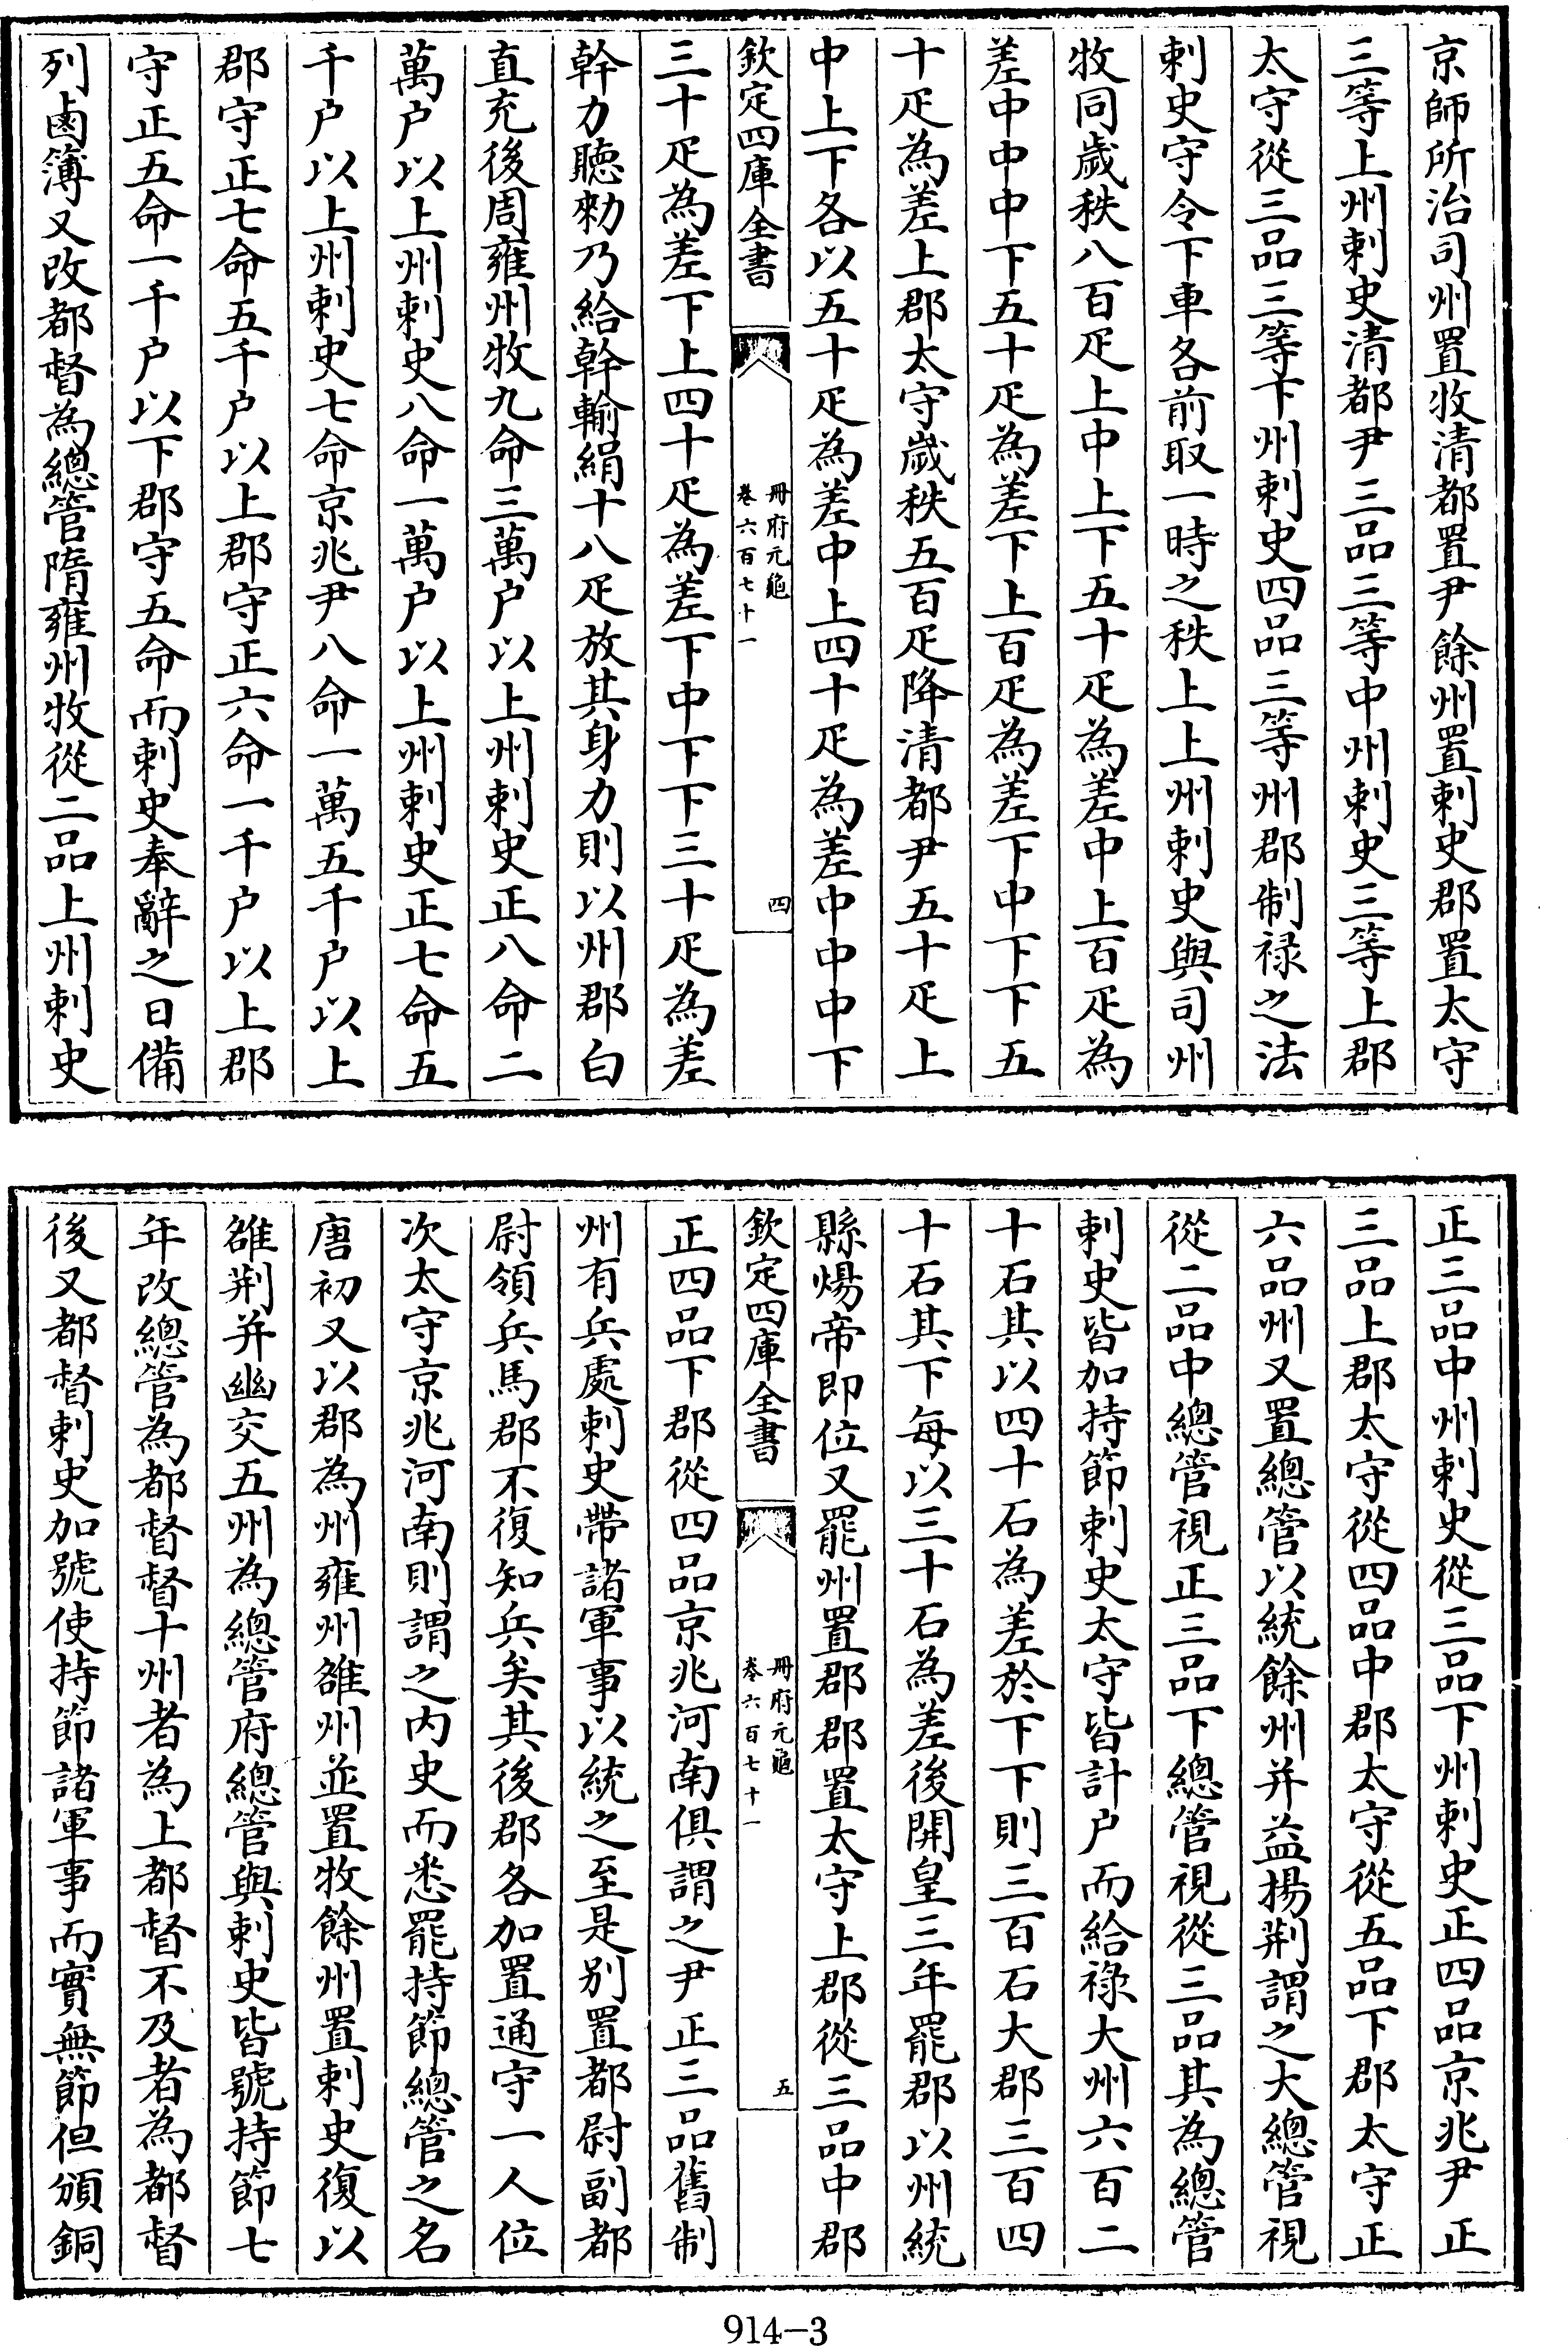 京師所治司州置牧清都置尹餘州置刺史郡置太守
三等上州刺史清都尹三品三等中州刺史三等上郡
太守從三品三等下州刺史四品三等州郡制祿之法
刺史守令下車各前取一時之秩上上州刺史與司州
牧同歲秩八百疋上中上下五十疋為差中上百疋為
差中中中下五十疋為差下上百疋為差下中下下五
十疋為差上郡太守歲秩五百疋降清都尹五十疋上
中上下各以五十疋為差中上四十疋為差中中中下
欽定四庫全書
冊府元龜
卷六百七十一
四
三十疋為差下上四十疋為差下中下下三十疋為差
幹力聽勑乃給幹輸絹十八疋放其身力則以州郡白
直充後周雍州牧九命三萬户以上州刺史正八命二
萬户以上州刺史八命一萬户以上州刺史正七命五
千户以上州刺史七命京兆尹八命一萬五千户以上
郡守正七命五千户以上郡守正六命一千户以上郡
守正五命一千户以下郡守五命而刺史奉辭之日備
列鹵簿又改都督為總管隋雍州牧從二品上州刺史
正三品中州刺史從三品下州刺史正四品京兆尹正
三品上郡太守從四品中郡太守從五品下郡太守正
六品州又置總管以統餘州并益揚荆謂之大總管視
從二品中總管視正三品下總管視從三品其為總管
刺史皆加持節刺史太守皆計户而給祿大州六百二
十石其以四十石為差於下下則三百石大郡三百四
十石其下每以三十石為差後開皇三年罷郡以州統
縣煬帝即位又罷州置郡郡置太守上郡從三品中郡
欽定四庫全書
冊府元龜
卷六百七十一
五
正四品下郡從四品京兆河南俱謂之尹正三品舊制
州有兵處刺史帶諸軍事以統之至是别置都尉副都
尉領兵馬郡不復知兵矣其後郡各加置通守一人位
次太守京兆河南則謂之内史而悉罷持節總管之名
唐初又以郡為州雍州雒州並置牧餘州置刺史復以
雒荆并幽交五州為總管府總管與刺史皆號持節七
年改總管為都督督十州者為上都督不及者為都督
後又都督刺史加號使持節諸軍事而實無節但頒銅
914-3